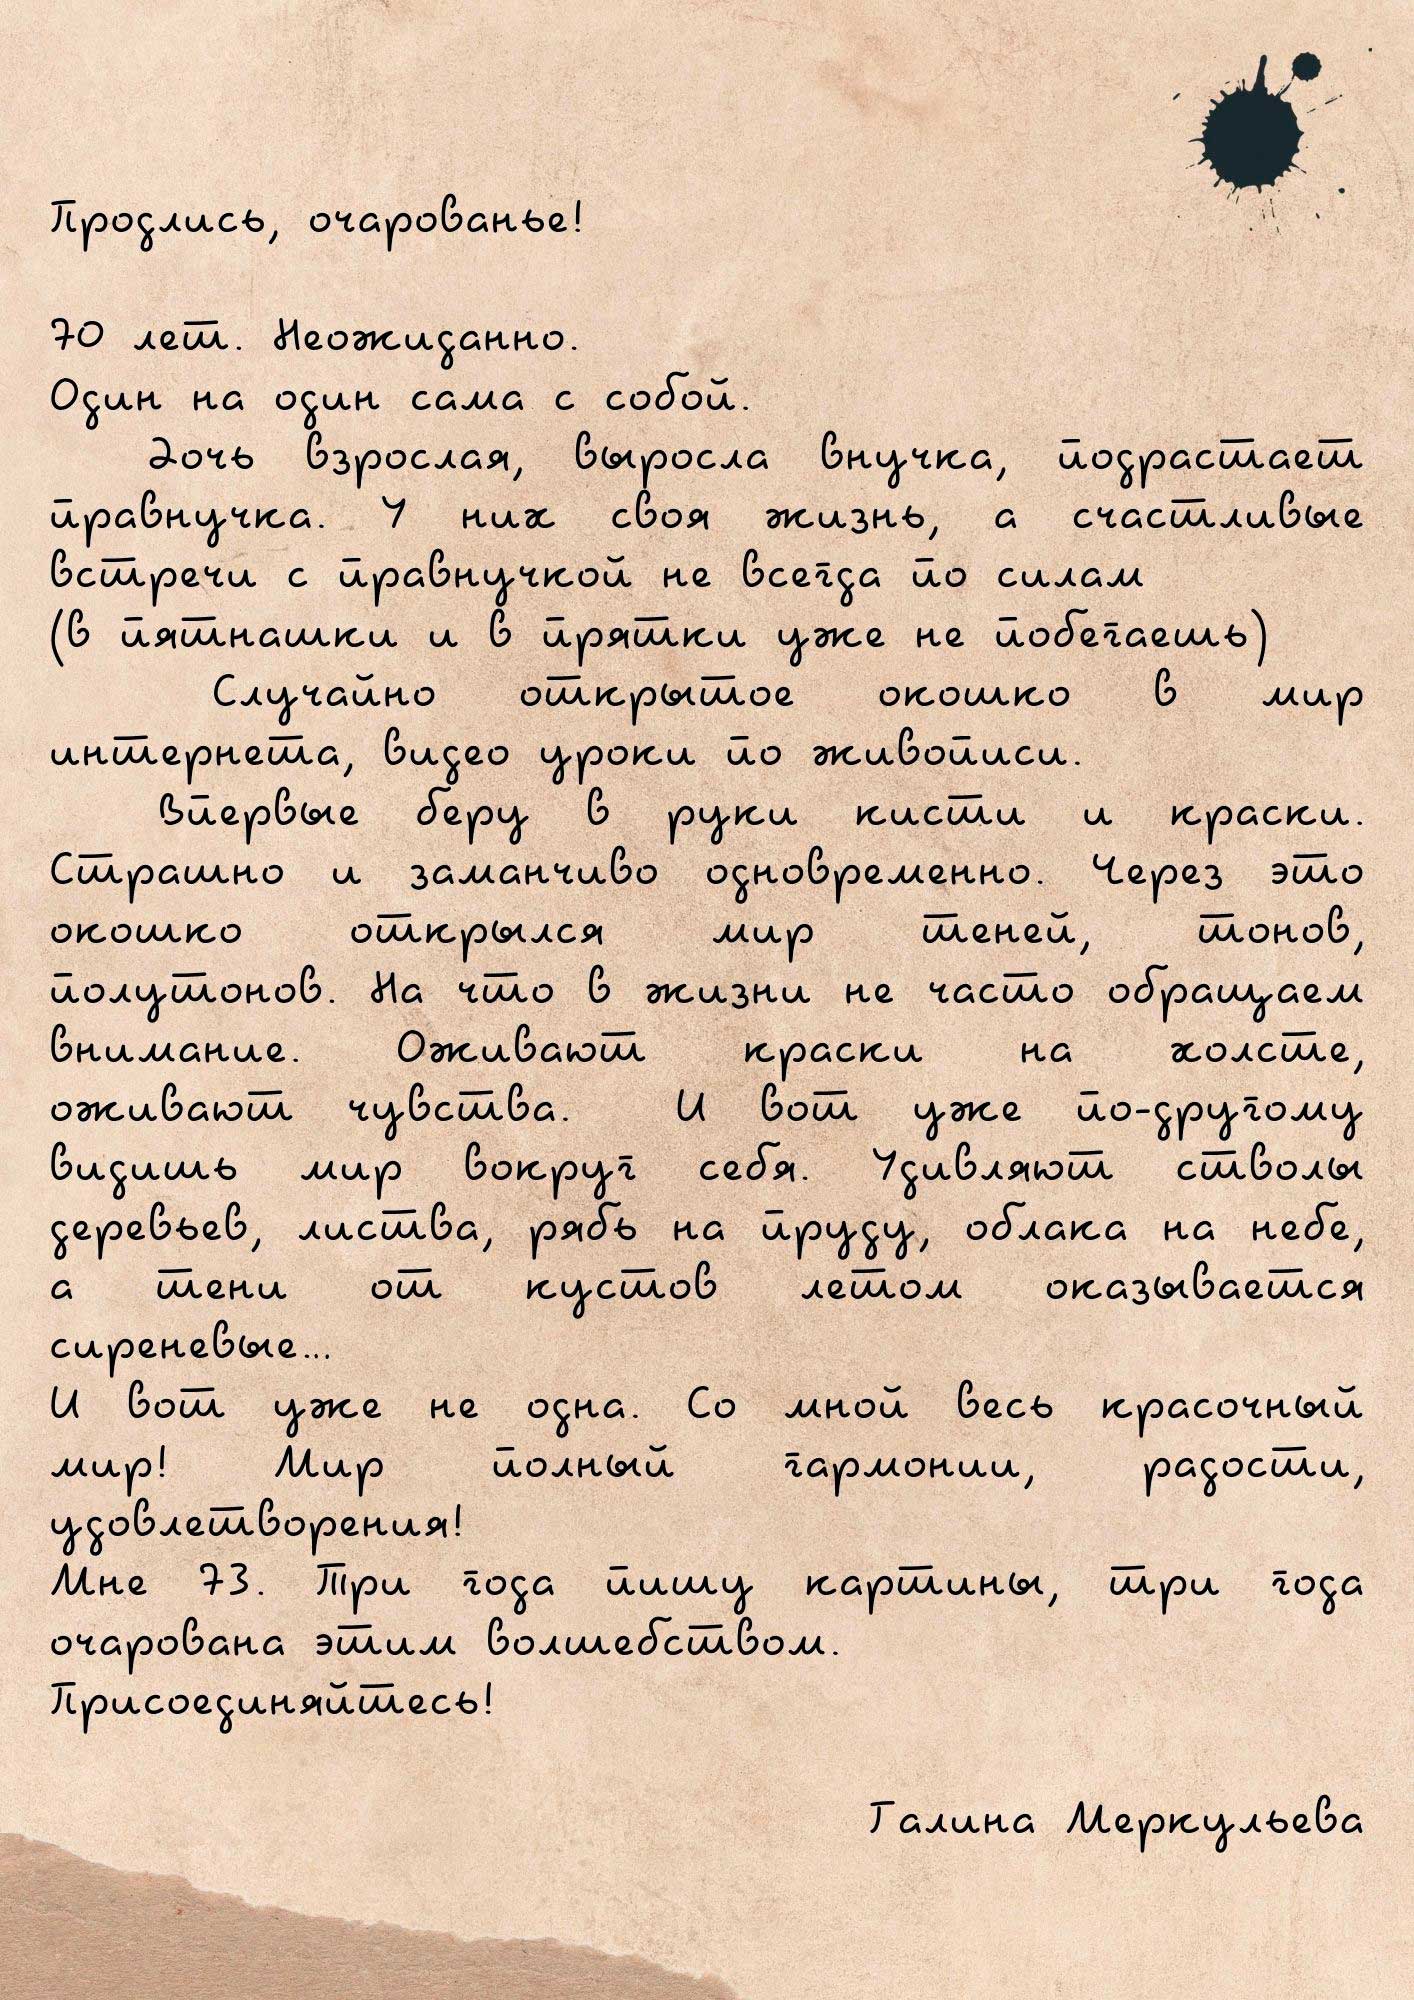 Продлись, очарованье!
70 лет. Неожиданно.
Один на один сама с собой.
Дочь взрослая, выросла внучка, подрастает
правнучка. У них своя жизнь, а счастливые
встречи с правнучкой не всегда по силам
(в пятнашки и в прятки уже не побегаешь)
Случайно открытое окошко в мир
интернета, видео уроки по живописи.
Впервые беру в руки кисти и краски.
Страшно и заманчиво одновременно. Через это
окошко открылся мир теней, тонов,
полутонов. На что в жизни не часто обращаем
внимание. Оживают краски на холсте,
оживают чувства. И вот уже по-другому
видишь мир вокруг себя. Удивляют стволы
деревьев, листва, рябь на пруду, облака на небе,
а тени от кустов летом оказывается
сиреневые...
И вот уже не одна. Со мной весь красочный
мир! Мир полный гармонии, радости,
удовлетворения!
Мне 73. Три года пишу картины, три года
очарована этим волшебством.
Присоединяйтесь!
Галина Меркульева